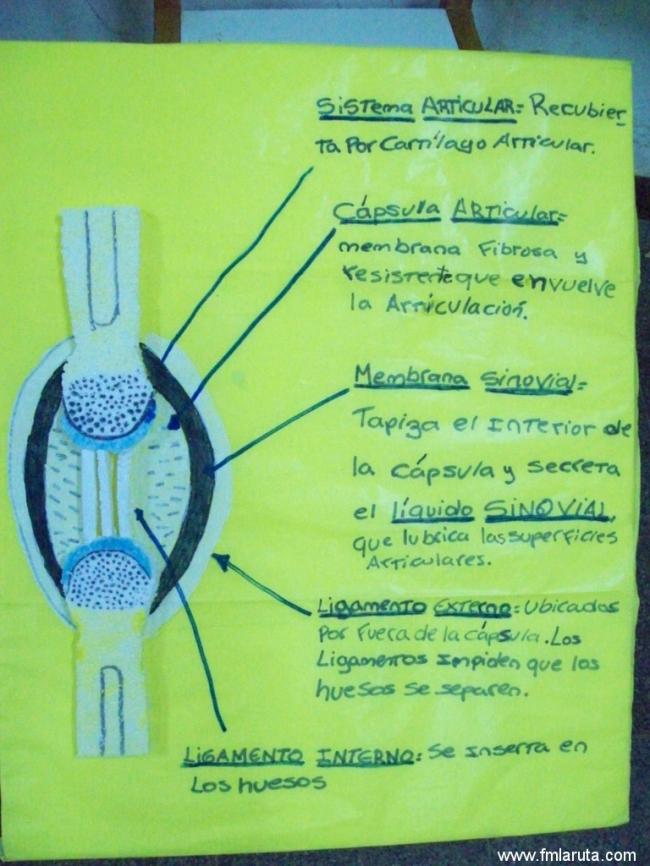 Sistema ARTICULAR= Recubier
ta Por Cartílago Articular.
Cápsula ARTicular=
membrana Fibrosa y
resistente que envuelve
la Articulación.
Membrana Sinovial=
Tapiza el INTerior de
la cápsula y secreta
el líquido SINOVIAL,
que lubrica las superficies
Articulares.
Ligamento Externo= Ubicados
Por Fuera de la cápsula. Los
Ligamentos Impiden que los
huesos se separen.
LIGAMENTO INTERNO: Se inserta en
Los huesos
www.fmlaruta.com